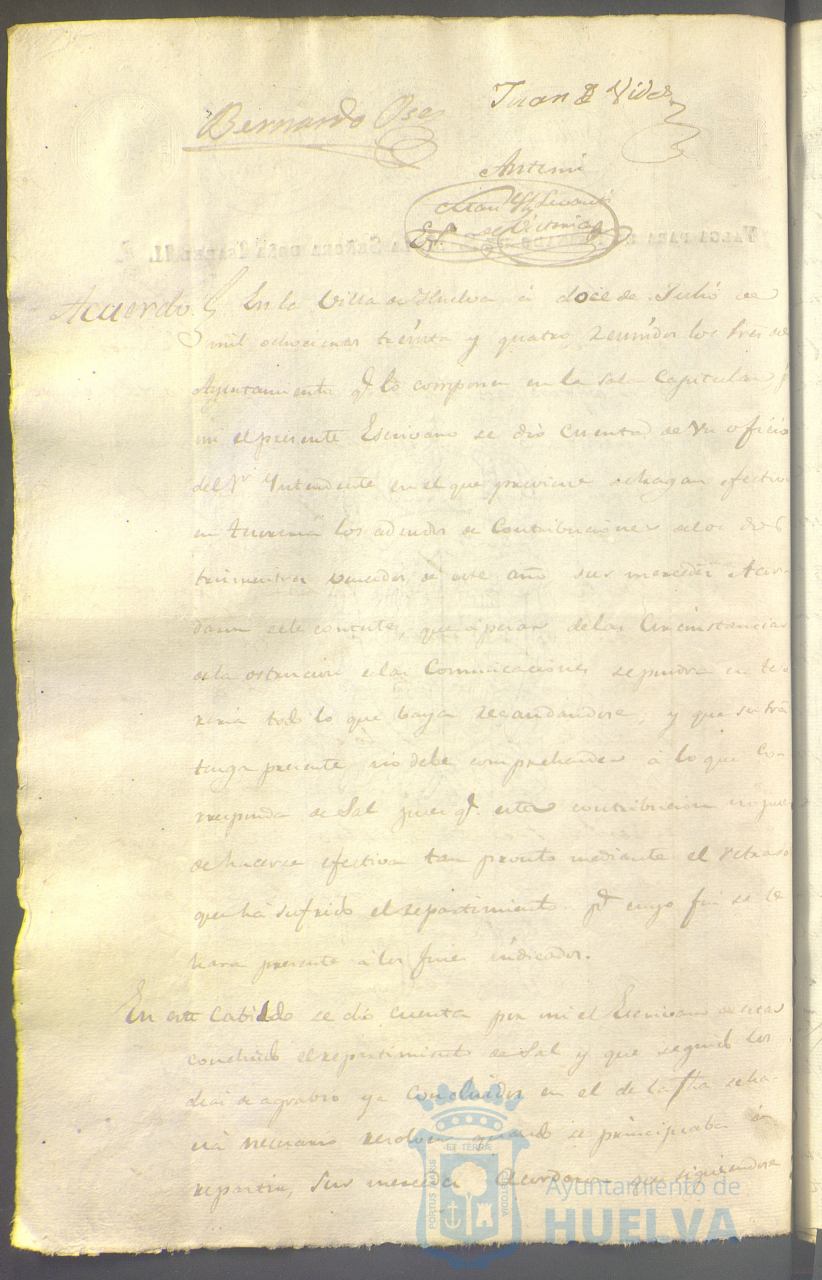 Bernardo Ose
Juan B Vides
Antemi
de Victoria
Acuerdo. En la Villa de Huelva á doce de Julio de
mil ochocientos treinta y quatro, reunidos los Sres de
Ayuntamiento q.e lo componen en la sala Capitular p.r
mi el presente Escrivano se dió cuenta de un oficio
del Sr Yntendente en el que previene se hagan efectivos
en tesoreria los adeudos de Contribuciones de los dos
trimestres vencidos de este año sus mercedes Acor-
daron se le conteste, que apesar de las Circunstancias
de la ostencion de las Comunicaciones se pondra en teso
reria todo lo que baya recaudandose, y que
tenga presente no debe comprehender á lo que Co-
rresponda de Sal pues q.e esta contribucion no puede
de hacerse efectiva tan pronto mediante el retraso
que há sufrido el repartimiento p.a cuyo fin se le
hara presente á los fines indicados.
En este Cabildo se dio cuenta por mi el Escrivano de estar
concluido el repartimiento de Sal y que seguido los
dias de agravio ya concluidos en el de la fha se ha-
cia necesario resolver quando se principiaba á
repartir, Sus mercedes Acordaron que siguiendose
PORTUS MARIS
ET TERRÆ
CUSTODIA
Ayuntamiento de
HUELVA